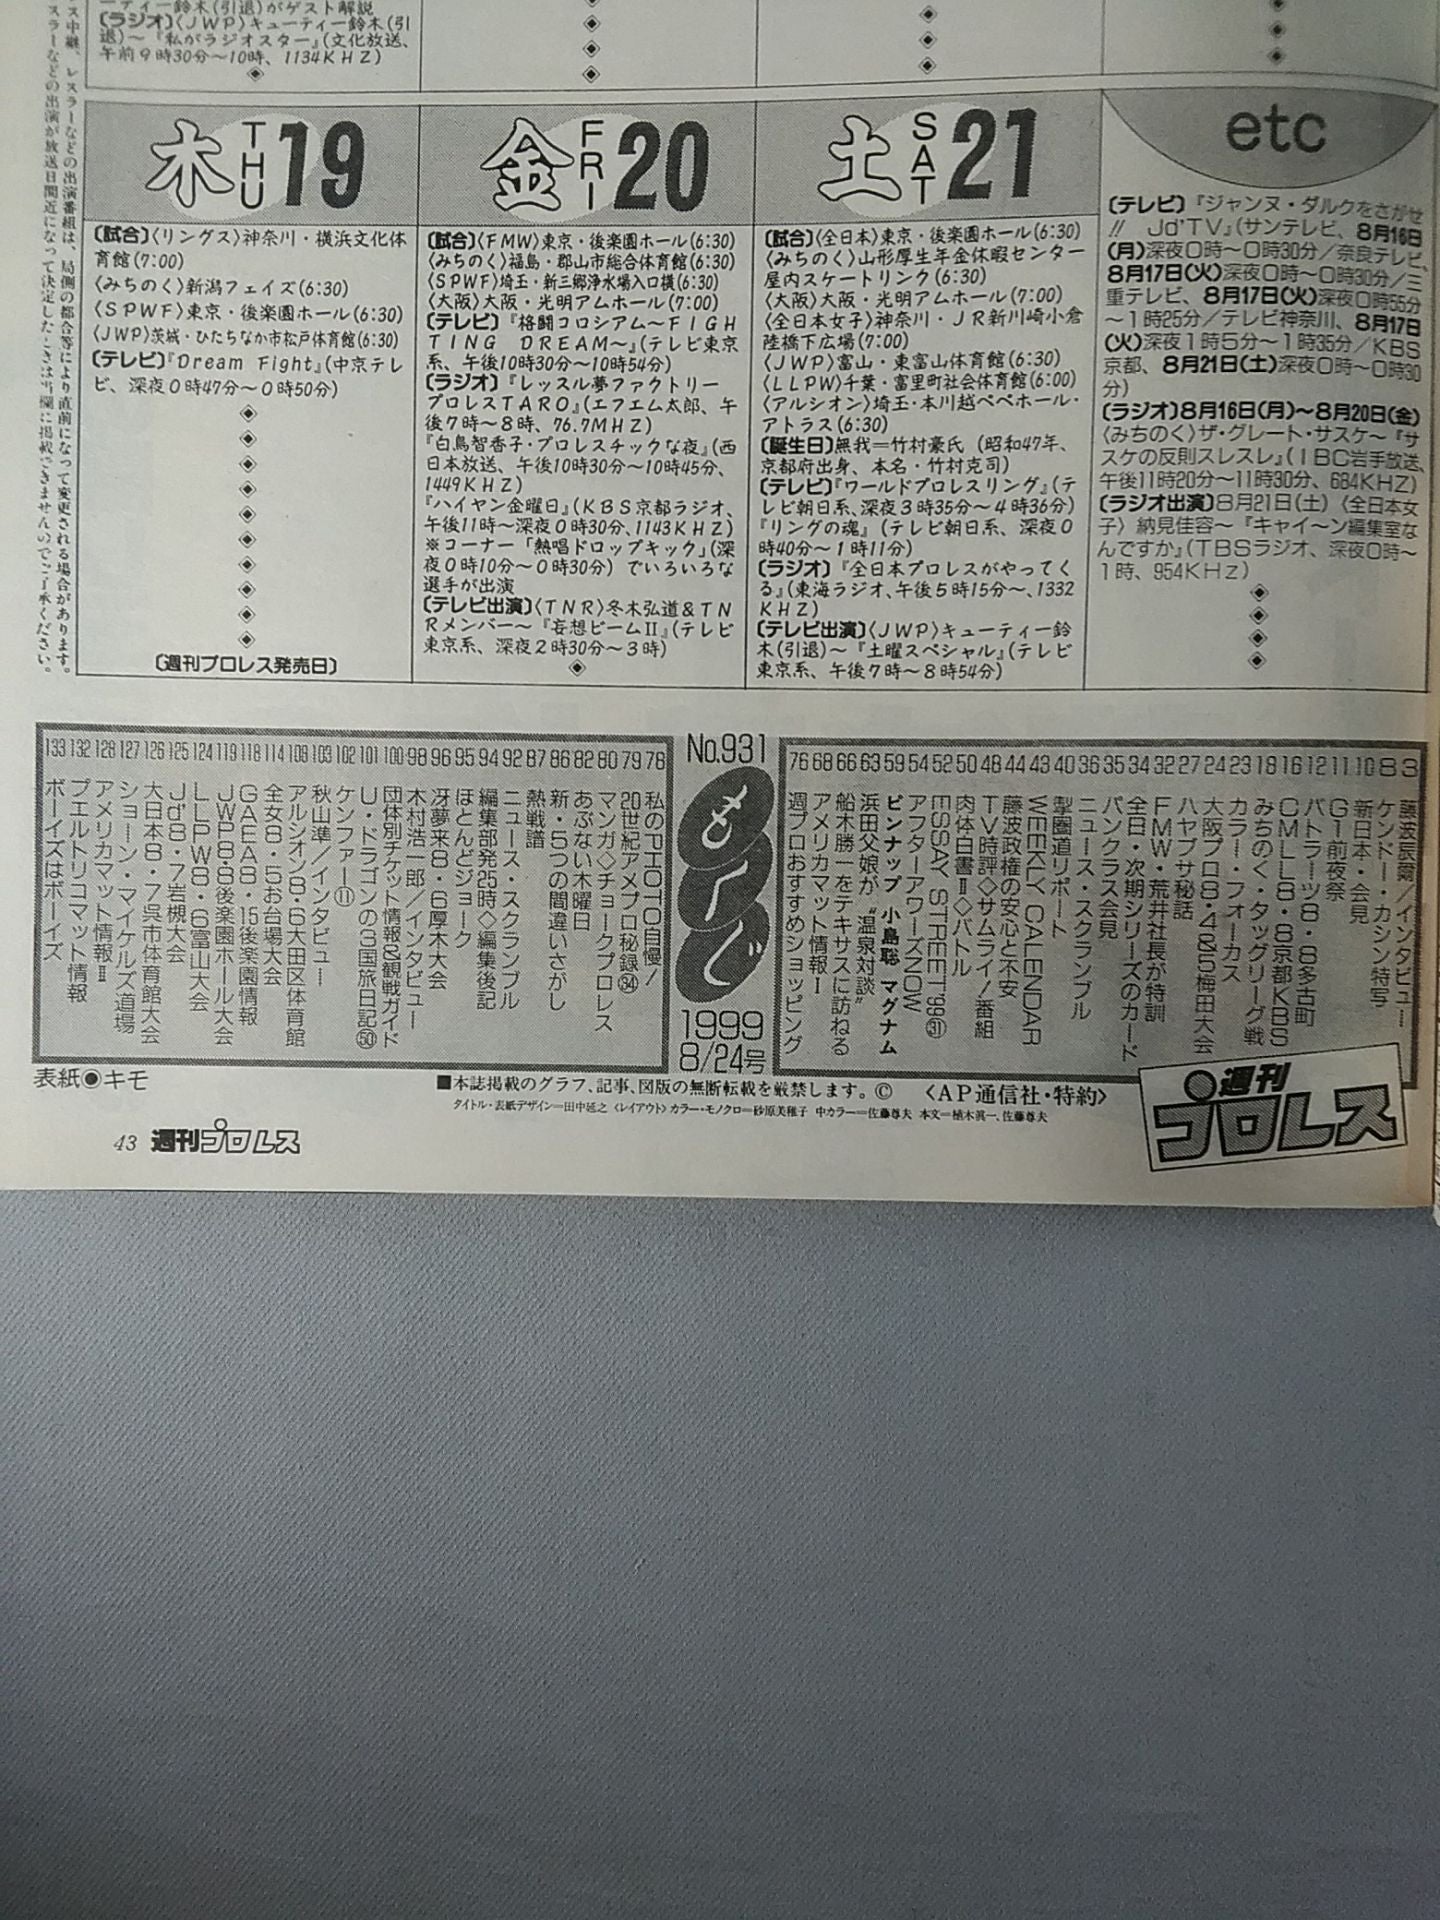 ーティー鈴木(引退)がゲスト解説
〔ラジオ〕〈ＪＷＰ〉キューティー鈴木(引
退)～『私がラジオスター』(文化放送、
午前９時30分～10時、1134ＫＨＺ)
◈
木 THU 19
〔試合〕〈リングス〉神奈川・横浜文化体
育館(7:00)
〈みちのく〉新潟フェイズ(6:30)
〈ＳＰＷＦ〉東京・後楽園ホール(6:30)
〈ＪＷＰ〉茨城・ひたちなか市松戸体育館(6:30)
〔テレビ〕『Dream Fight』(中京テレ
ビ、深夜０時47分～０時50分)
◈
〔週刊プロレス発売日〕
金 FRI 20
〔試合〕〈ＦＭＷ〉東京・後楽園ホール(6:30)
〈みちのく〉福島・郡山市総合体育館(6:30)
〈ＳＰＷＦ〉埼玉・新三郷浄水場入口横(6:30)
〈大阪〉大阪・光明アムホール(7:00)
〔テレビ〕『格闘コロシアム～ＦＩＧＨ
ＴＩＮＧ　ＤＲＥＡＭ～』(テレビ東京
系、午後10時30分～10時54分)
〔ラジオ〕『レッスル夢ファクトリー
プロレスＴＡＲＯ』(エフエム太郎、午
後７時～８時、76.7ＭＨＺ)
『白鳥智香子・プロレスチックな夜』(西
日本放送、午後10時30分～10時45分、
1449ＫＨＺ)
『ハイヤン金曜日』(ＫＢＳ京都ラジオ、
午後11時～深夜０時30分、1143ＫＨＺ)
※コーナー「熱唱ドロップキック」(深
夜０時10分～０時30分）でいろいろな
選手が出演
〔テレビ出演〕〈ＴＮＲ〉冬木弘道＆ＴＮ
Ｒメンバー～『妄想ビームⅡ』(テレビ
東京系、深夜２時30分～３時)
◈
土 SAT 21
〔試合〕〈全日本〉東京・後楽園ホール(6:30)
〈みちのく〉山形厚生年金休暇センター
屋内スケートリンク(6:30)
〈大阪〉大阪・光明アムホール(7:00)
〈全日本女子〉神奈川・ＪＲ新川崎小倉
陸橋下広場(7:00)
〈ＪＷＰ〉富山・東富山体育館(6:30)
〈ＬＬＰＷ〉千葉・富里町社会体育館(6:00)
〈アルシオン〉埼玉・本川越ペペホール・
アトラス(6:30)
〔誕生日〕無我＝竹村豪氏（昭和47年、
京都府出身、本名・竹村克司)
〔テレビ〕『ワールドプロレスリング』(テ
レビ朝日系、深夜３時35分～４時36分)
『リングの魂』（テレビ朝日系、深夜０
時40分～１時11分)
〔ラジオ〕『全日本プロレスがやってく
る』(東海ラジオ、午後５時15分～、1332
ＫＨＺ)
〔テレビ出演〕〈ＪＷＰ〉キューティー鈴
木(引退)～『土曜スペシャル』(テレビ
東京系、午後７時～８時54分)
etc
〔テレビ〕『ジャンヌ・ダルクをさがせ
!! Ｊｄ'ＴＶ』(サンテレビ、8月16日
(月)深夜０時～０時30分／奈良テレビ、
8月17日(火)深夜０時～０時30分／三
重テレビ、8月17日(火)深夜０時55分
～１時25分／テレビ神奈川、8月17日
(火)深夜１時５分～１時35分／ＫＢＳ
京都、8月21日(土)深夜０時～０時30
分)
〔ラジオ〕8月16日(月)～8月20日(金)
〈みちのく〉ザ・グレート・サスケ～『サ
スケの反則スレスレ』(ＩＢＣ岩手放送、
午後11時20分～11時30分、684ＫＨＺ)
〔ラジオ出演〕8月21日(土)〈全日本女
子〉納見佳容～『キャイ～ン編集室な
んですか』(ＴＢＳラジオ、深夜０時～
１時、954ＫＨｚ)
◈
ス中継、レスラーなどの出演番組は、局側の都合等により直前になって変更される場合があります。
スラーなどの出演が放送日間近になって決定したときは当欄に掲載できませんのでご了承ください。
3 藤波辰爾／インタビュー
8 ケンドー・カシン特写
10 新日本・会見
11 Ｇ１前夜祭
12 バトラーツ８・８多古町
16 ＣＭＬＬ８・８京都ＫＢＳ
18 みちのく・タッグリーグ戦
23 カラー・フォーカス
24 大阪プロ８・４＆５梅田大会
27 ハヤブサ秘話
32 ＦＭＷ・荒井社長が特訓
34 全日・次期シリーズのカード
35 パンクラス会見
36 ニュース・スクランブル
40 掣圏道リポート
43 WEEKLY CALENDAR
44 藤波政権の安心と不安
48 ＴＶ時評◇サムライ！番組
50 肉体白書Ⅱ◇バトル
52 ESSAY STREET'99㉛
54 アフターアワーズNOW
59 ピンナップ 小島聡 マグナム
63 浜田父娘が“温泉対談”
66 船木勝一をテキサスに訪ねる
68 アメリカマット情報Ⅰ
76 週プロおすすめショッピング
No.931
もくじ
1999
8/24号
78 私のPHOTO自慢！
79 20世紀アメプロ秘録㉞
80 マンガ◇チョークプロレス
82 あぶない木曜日
86 新・５つの間違いさがし
87 熱戦譜
92 ニュース・スクランブル
94 編集部発25時◇編集後記
95 ほとんどジョーク
96 冴夢来８・６厚木大会
98 木村浩一郎／インタビュー
100 団体別チケット情報＆観戦ガイド
101 Ｕ・ドラゴンの３国旅日記㊿
102 ケンファー⑪
103 秋山準／インタビュー
108 アルシオン８・６大田区体育館
114 全女８・５お台場大会
118 ＧＡＥＡ８・15後楽園情報
119 ＪＷＰ８・８後楽園ホール大会
124 ＬＬＰＷ８・６富山大会
125 Ｊｄ'８・７岩槻大会
126 大日本８・７呉市体育館大会
127 ショーン・マイケルズ道場
128 アメリカマット情報Ⅱ
132 プエルトリコマット情報
133 ボーイズはボーイズ
表紙◉キモ
■本誌掲載のグラフ、記事、図版の無断転載を厳禁します。©　〈ＡＰ通信社・特約〉
タイトル・表紙デザイン＝田中延之〈レイアウト〉カラー・モノクロ＝砂原美稚子 中カラー＝佐藤尊夫 本文＝植木眞一、佐藤尊夫
43 週刊プロレス
週刊プロレス